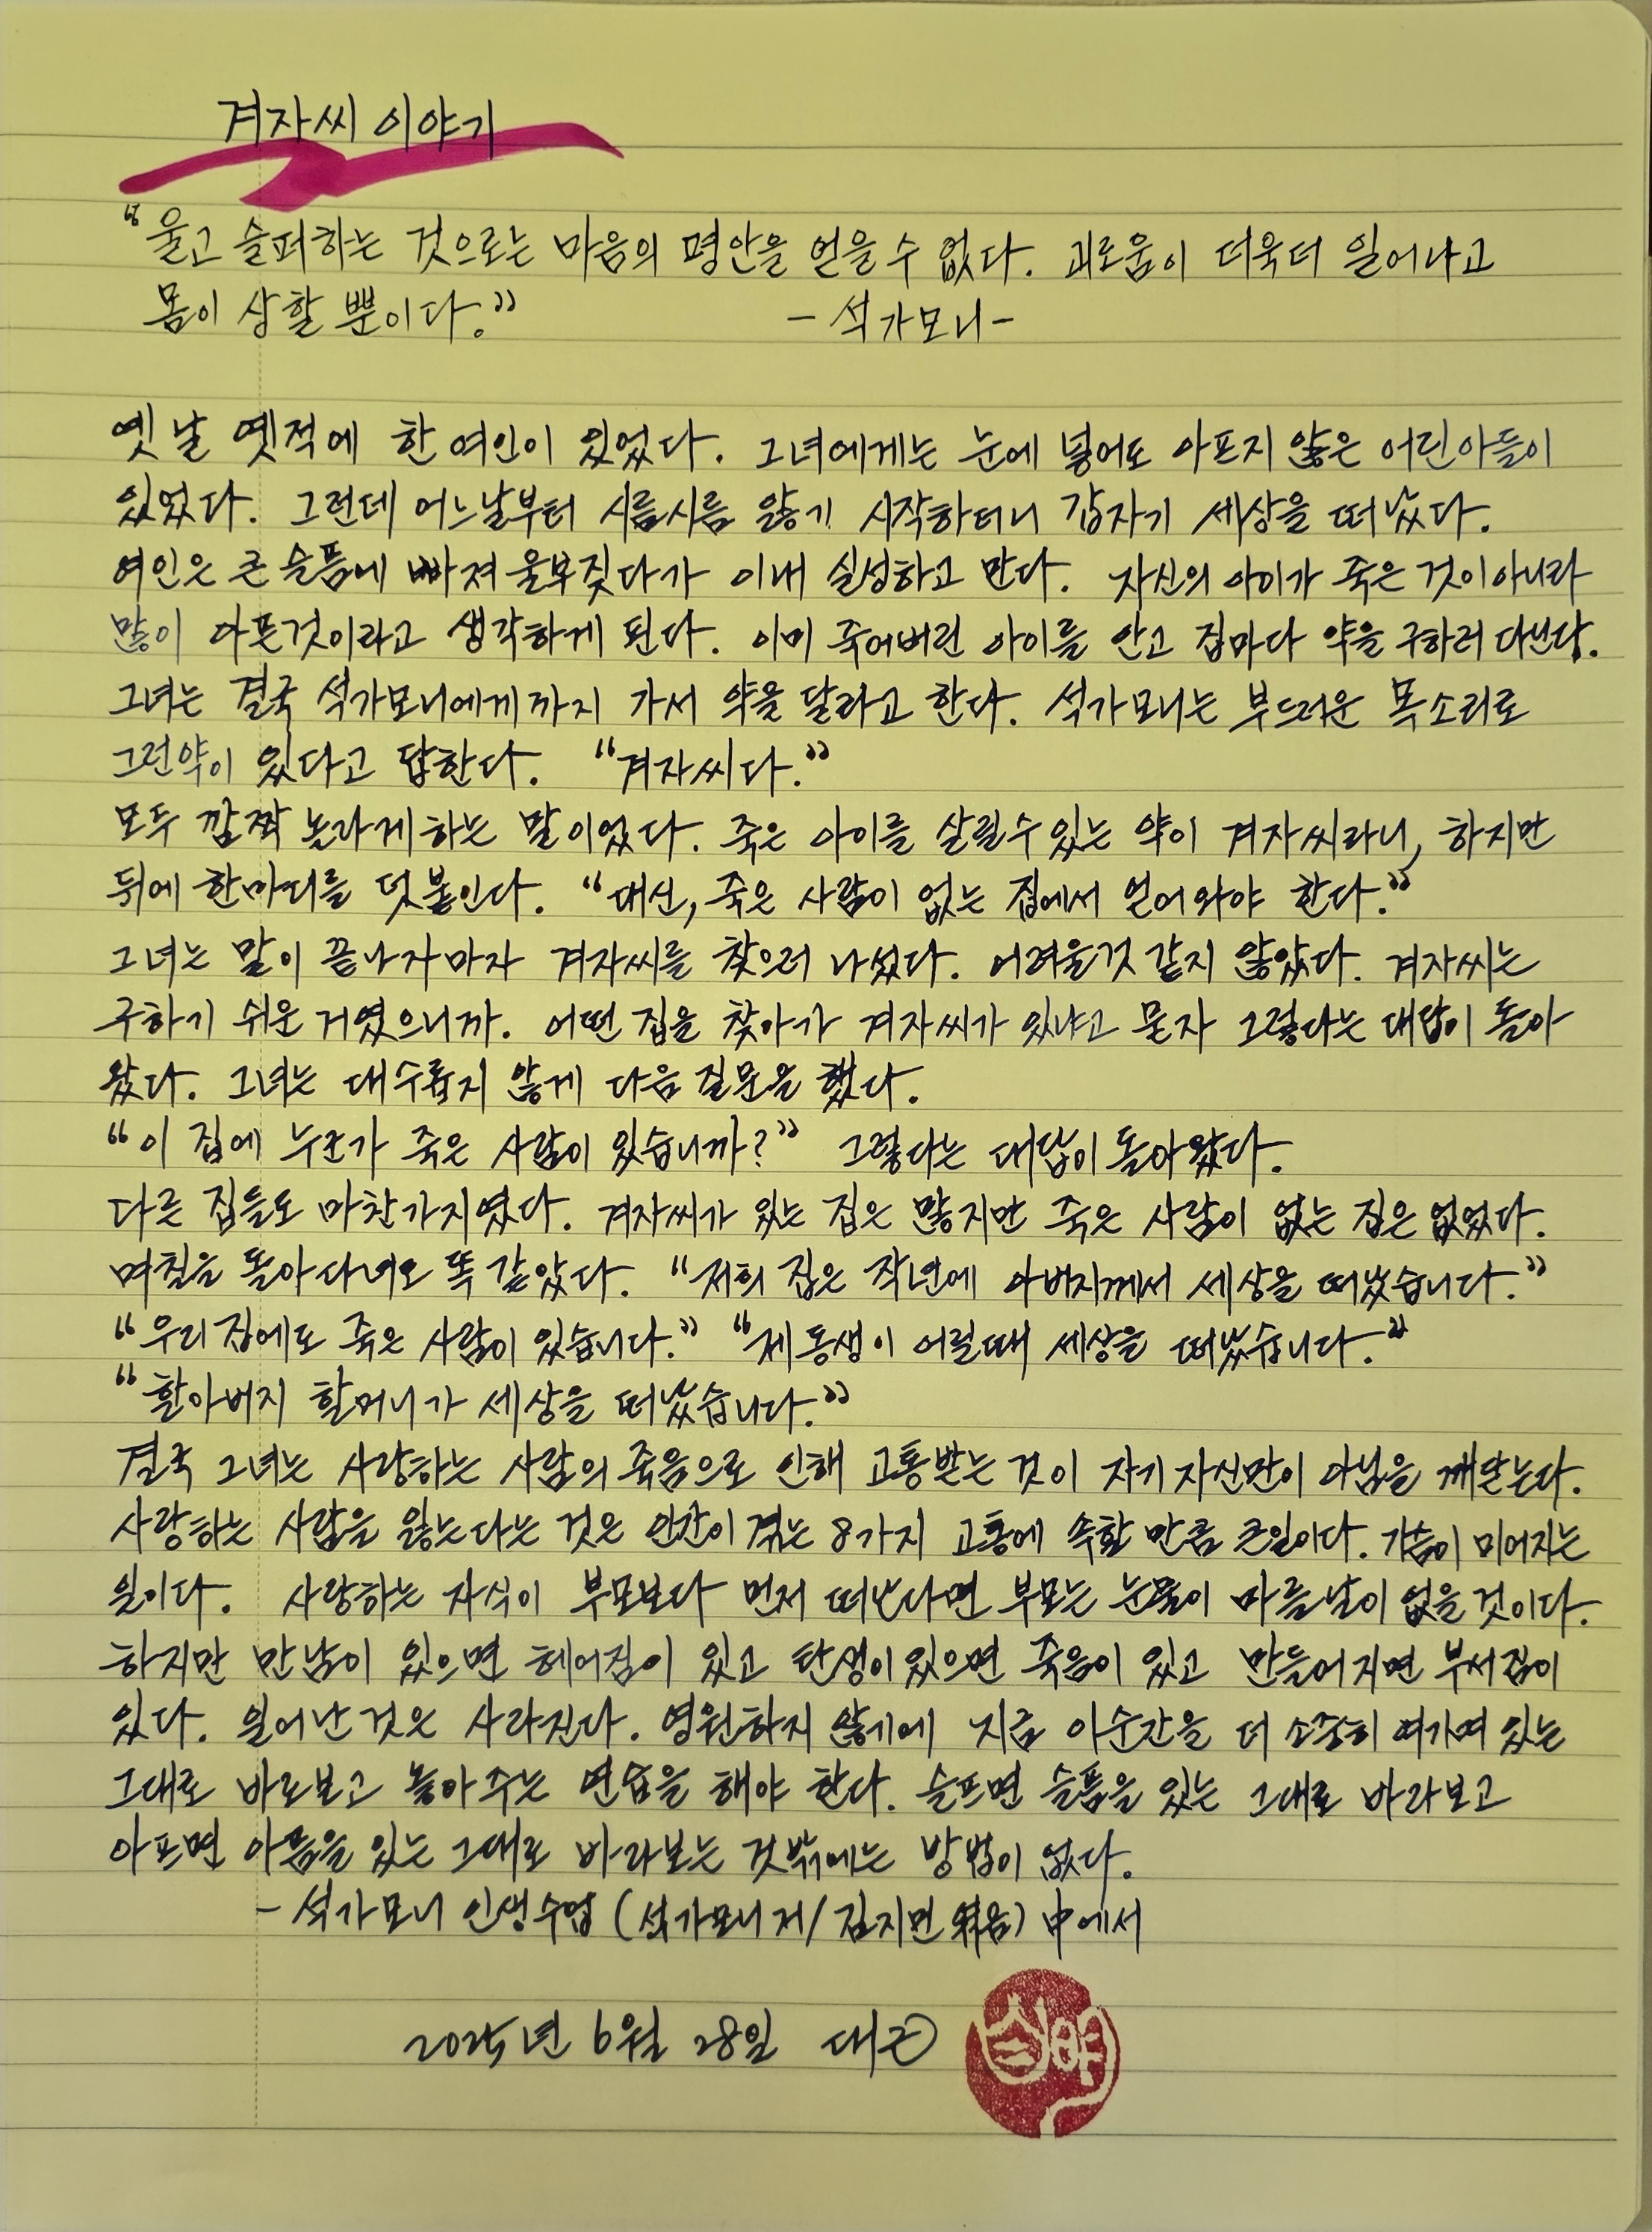 겨자씨 이야기
"울고 슬퍼하는 것으로는 마음의 평안을 얻을 수 없다. 괴로움이 더욱더 일어나고
몸이 상할 뿐이다." - 석가모니-
옛날 옛적에 한 여인이 있었다. 그녀에게는 눈에 넣어도 아프지 않은 어린아들이
있었다. 그런데 어느날부터 시름시름 앓기 시작하더니 갑자기 세상을 떠났다.
여인은 큰 슬픔에 빠져 울부짖다가 이내 실성하고 만다. 자신의 아이가 죽은 것이 아니라
많이 아픈것이라고 생각하게 된다. 이미 죽어버린 아이를 안고 집마다 약을 구하러 다닌다.
그녀는 결국 석가모니에게까지 가서 약을 달라고 한다. 석가모니는 부드러운 목소리로
그런약이 있다고 답한다. "겨자씨다."
모두 깜짝 놀라게 하는 말이었다. 죽은 아이를 살릴수 있는 약이 겨자씨라니, 하지만
뒤에 한마디를 덧붙인다. "대신, 죽은 사람이 없는 집에서 얻어와야 한다."
그녀는 말이 끝나자마자 겨자씨를 찾으러 나섰다. 어려울것 같지 않았다. 겨자씨는
구하기 쉬운 거였으니까. 어떤 집을 찾아가 겨자씨가 있냐고 묻자 그렇다는 대답이 돌아
왔다. 그녀는 대수롭지 않게 다음 질문을 했다.
"이 집에 누군가 죽은 사람이 있습니까?" 그렇다는 대답이 돌아왔다.
다른 집들도 마찬가지였다. 겨자씨가 있는 집은 많지만 죽은 사람이 없는 집은 없었다.
며칠을 돌아다녀도 똑같았다. "저희 집은 작년에 아버지께서 세상을 떠났습니다."
"우리 집에도 죽은 사람이 있습니다." "제 동생이 어릴때 세상을 떠났습니다."
"할아버지 할머니가 세상을 떠났습니다."
결국 그녀는 사랑하는 사람의 죽음으로 인해 고통받는 것이 자기 자신만이 아님을 깨닫는다.
사랑하는 사람을 잃는다는 것은 인간이 겪는 8가지 고통에 속할 만큼 큰일이다. 가슴이 미어지는
일이다. 사랑하는 자식이 부모보다 먼저 떠난다면 부모는 눈물이 마를날이 없을 것이다.
하지만 만남이 있으면 헤어짐이 있고 탄생이 있으면 죽음이 있고 만들어지면 부서짐이
있다. 일어난 것은 사라진다. 영원하지 않기에 지금 이순간을 더 소중히 여기며 있는
그대로 바로보고 놓아 주는 연습을 해야 한다. 슬프면 슬픔을 있는 그대로 바라보고
아프면 아픔을 있는 그대로 바라보는 것밖에는 방법이 없다.
- 석가모니 인생수업 (석가모니 저/김지민 엮음) 中에서
2025년 6월 28일 대곤